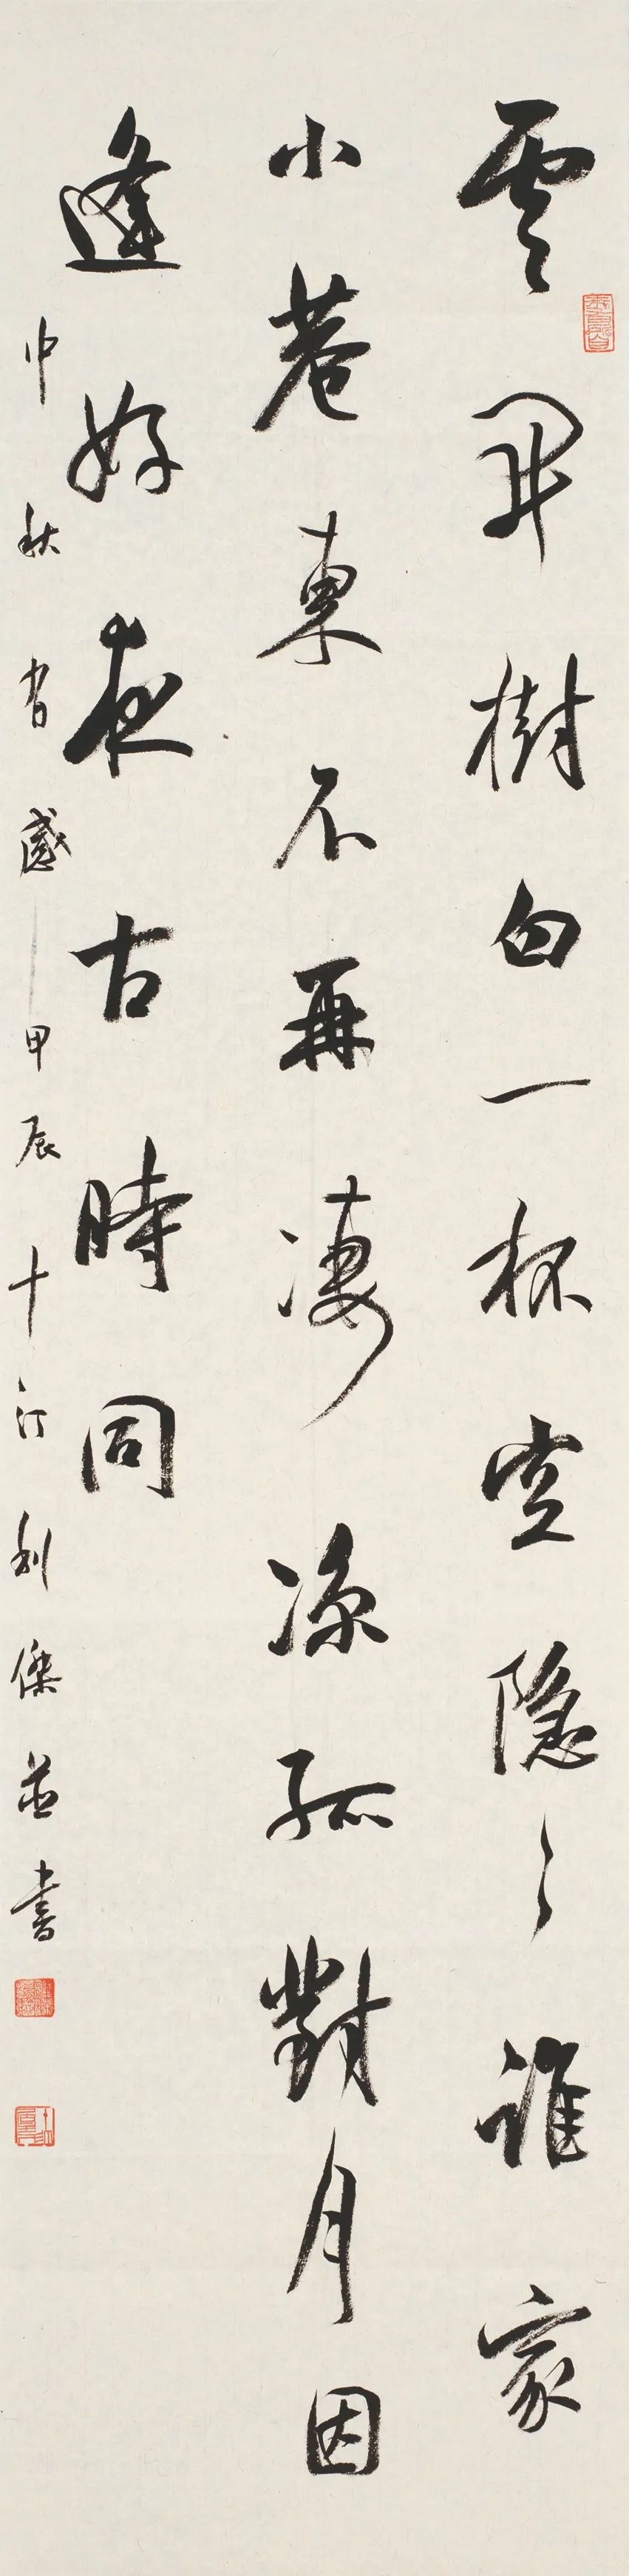 雲開樹白一杯空隱〻誰家
小巷東不再凄凉孤對月因
逢好夜古時同
中秋有感甲辰十汀利傑並書